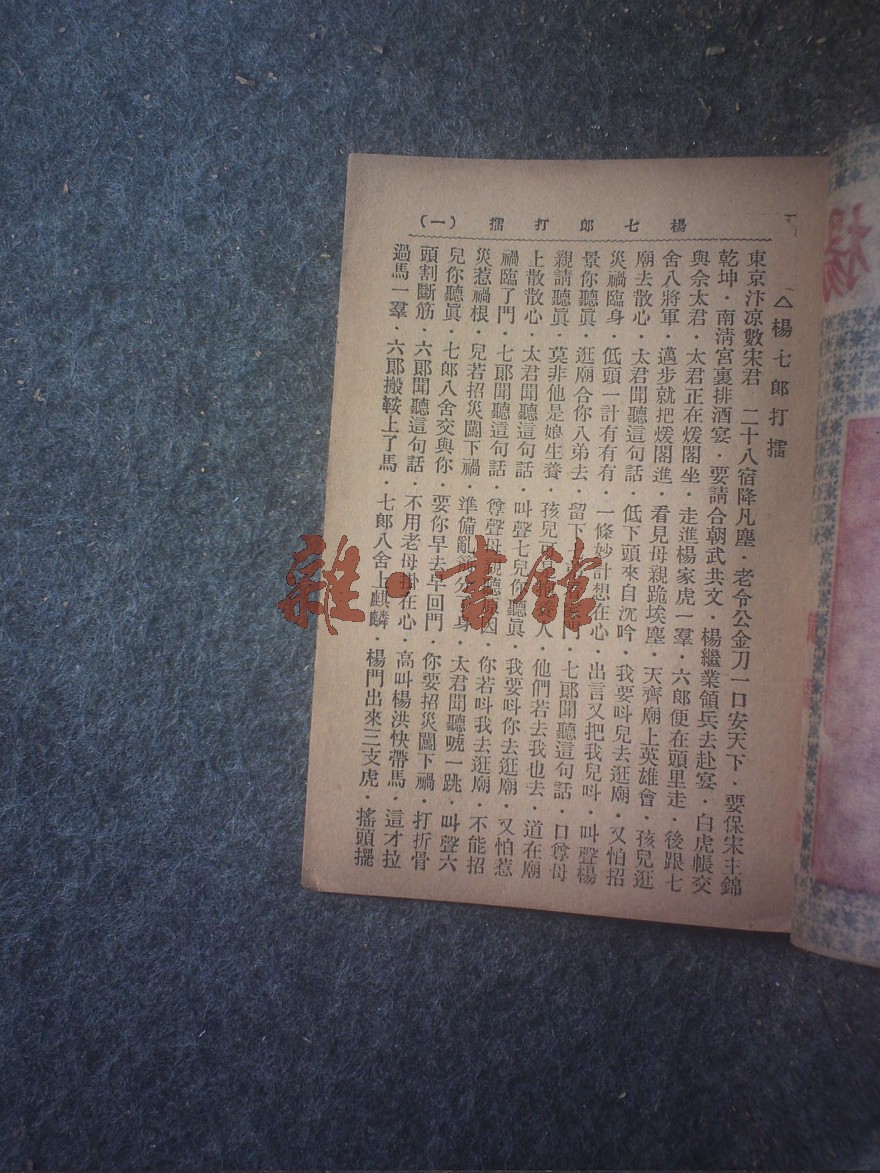 楊七郎打擂 (一)
△楊七郎打擂
東京汴凉數宋君 二十八宿降凡塵·老令公金刀一口安天下·要保宋主錦
乾坤·南淸宮裏排酒宴·要請合朝武共文·楊繼業領兵去赴宴·白虎帳交
與佘太君·太君正在煖閣坐·走進楊家虎一羣·六郎便在頭里走·後跟七
舍八將軍·邁步就把煖閣進·看見母親跪埃塵·天齊廟上英雄會·孩兒逛
廟去散心·太君聞聽這句話·低下頭來自沉吟·我要呌兒去逛廟·又怕招
災禍臨身·低頭一計有有有·一條妙計想在心·出言又把我兒呌·呌聲楊
景你聽眞·逛廟合你八弟去·留下 門·七郎聞聽這句話·口尊母
親請聽眞·莫非他是娘生養·孩兒 人·他們若去我也去·道在廟
上散散心·太君聞聽這句話·呌聲七兒你聽眞·我要呌你去逛廟·又怕惹
禍臨了門·七郎聞聽這句話·尊聲母親聽 因·你若呌我去逛廟·不能招
災惹禍根·兒若招災闖下禍·準備亂 分 身·太君聞聽唬一跳·呌聲六
兒你聽眞·七郎八舍交與你·要你早去早回門·你要招災闖下禍·打折骨
頭割斷筋·六郎聞聽這句話·不用老母掛在心·高叫楊洪快帶馬·這才拉
過馬一羣·六郎搬鞍上了馬·七郎八舍上麒麟·楊門出來三支虎·搖頭擺
楊
雜·書館